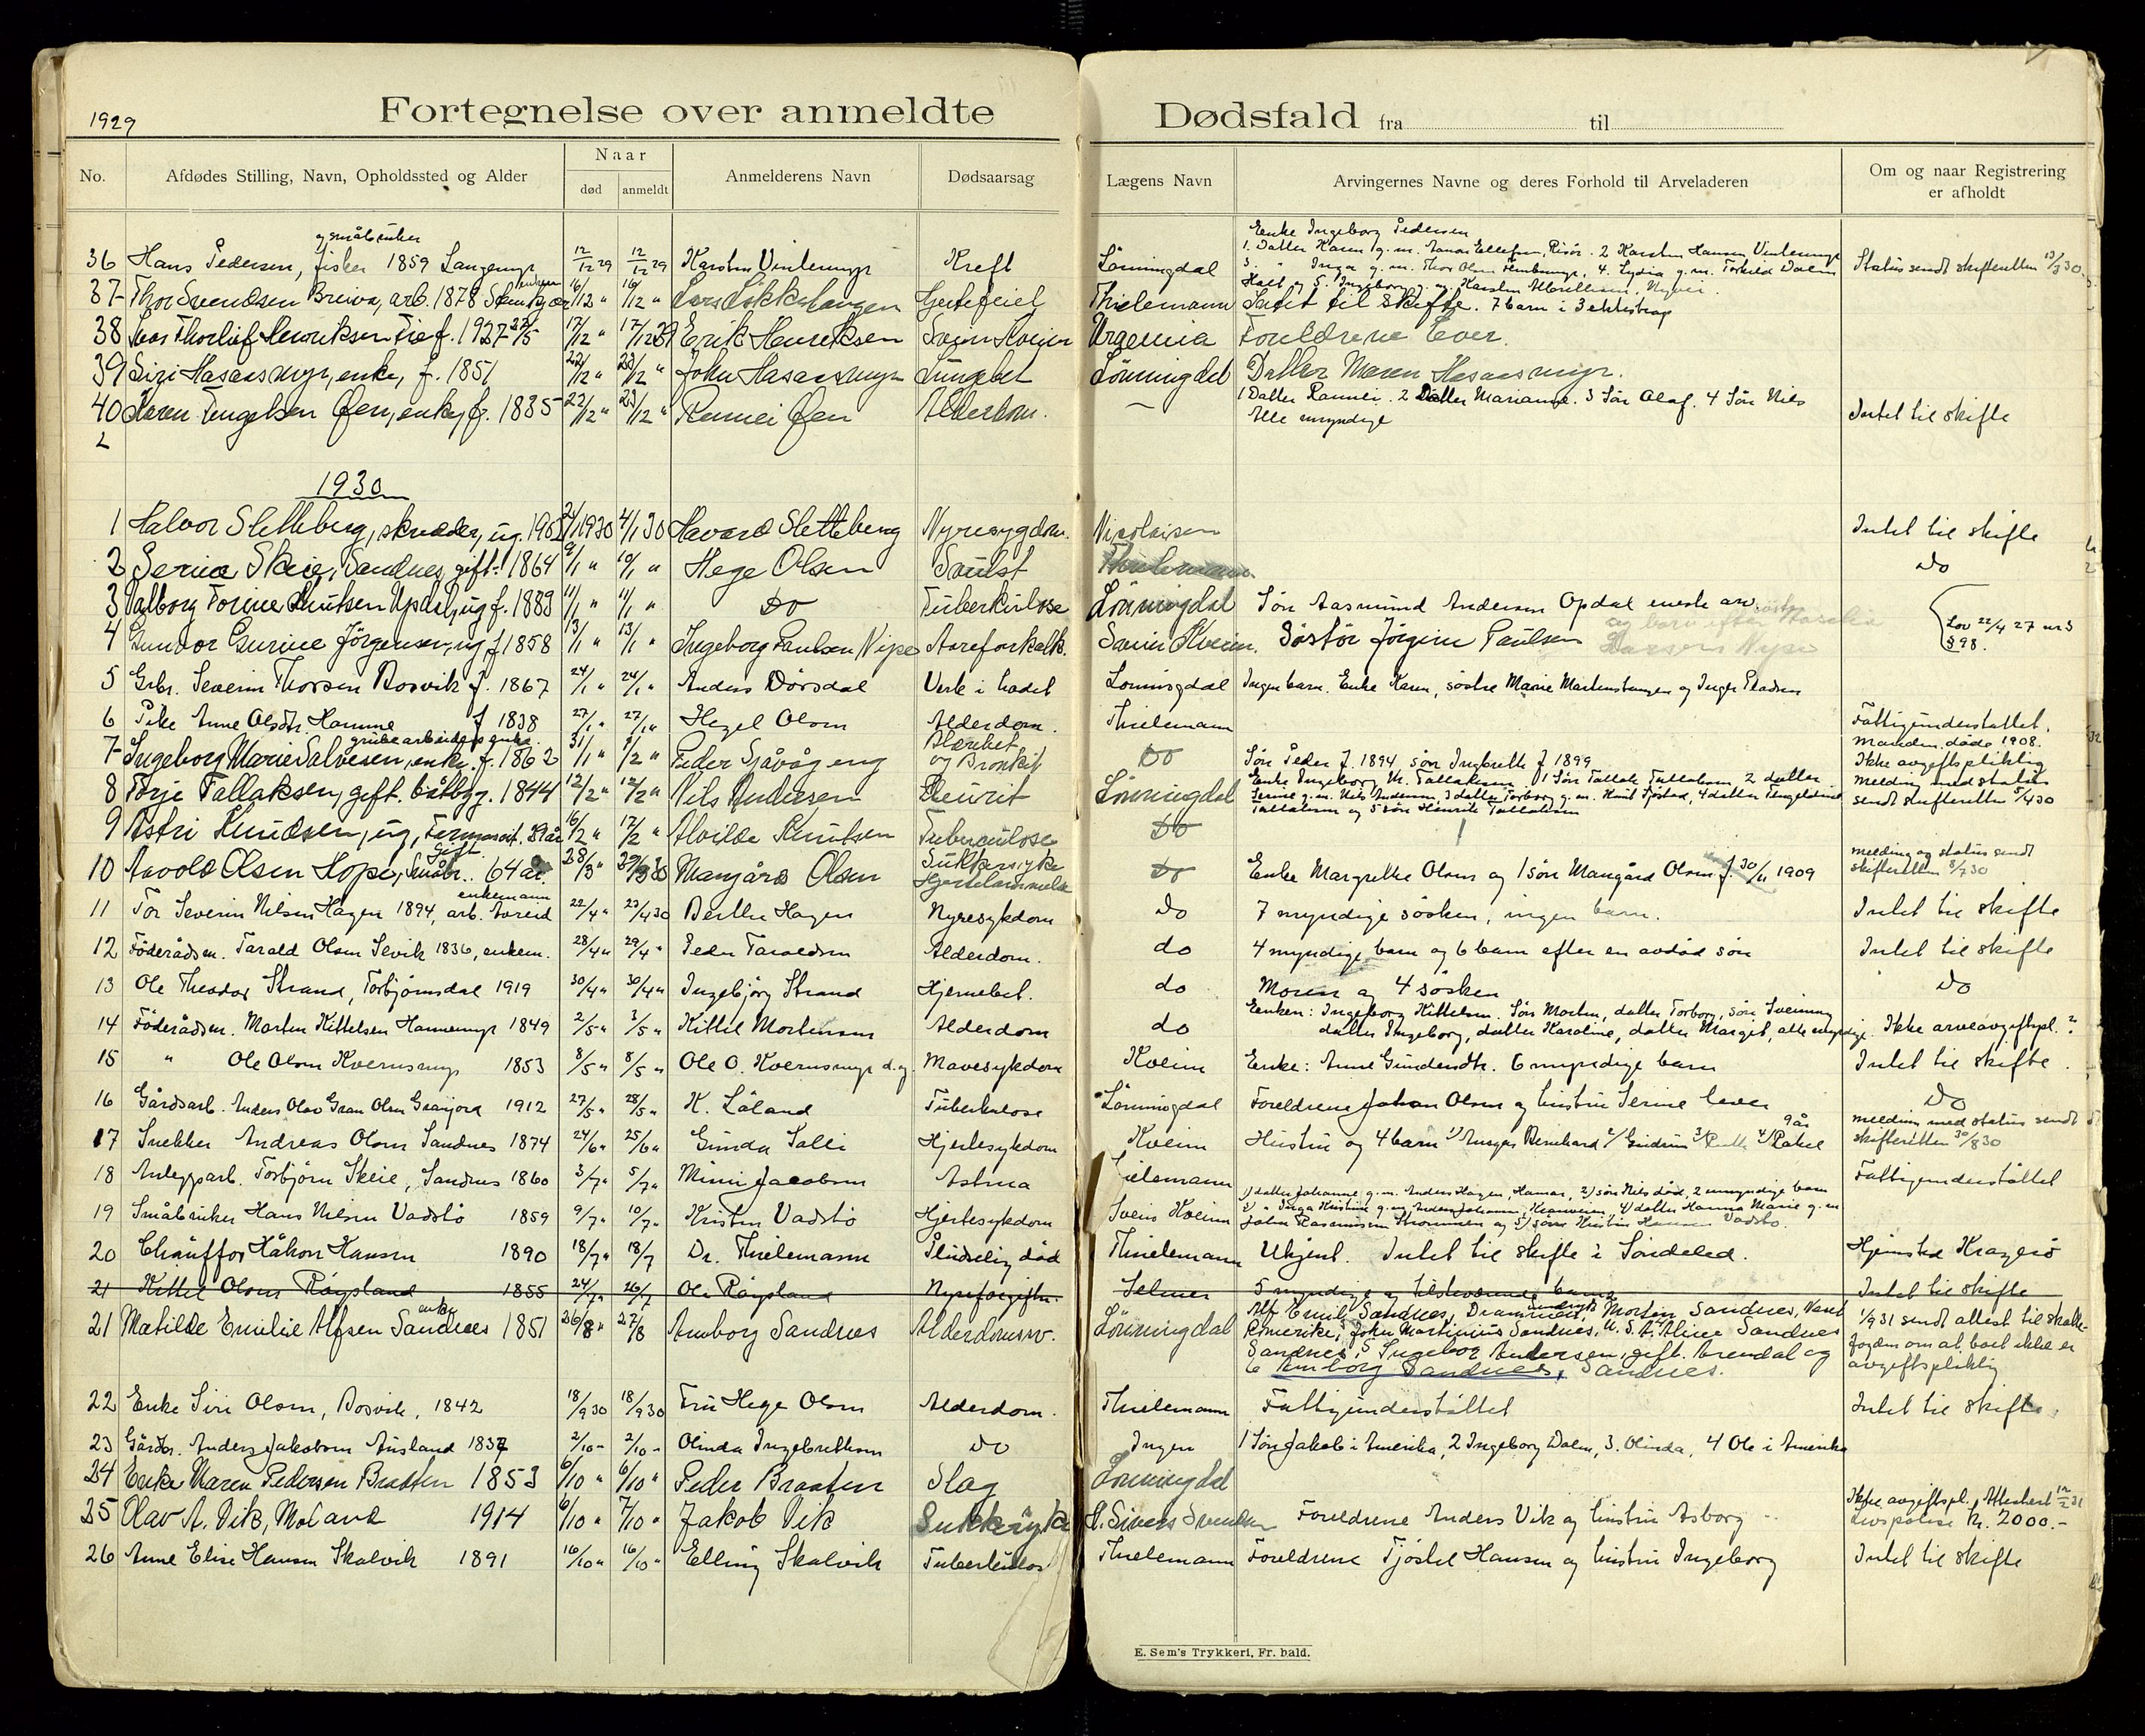 1929
Fortegnelse over anmeldte Dødsfald fra til
No.
Afdødes Stilling, Navn, Opholdssted og Alder
Naar
død
anmeldt
Anmelderens Navn
Dødsaarsag
Lægens Navn
Arvingernes Navne og deres Forhold til Arveladeren
Om og naar Registrering
er afholdt
og småbruker
Enke Ingeborg Pedersen
36 Hans Pedersen, fisker 1859 12/12 29 12/12 29 Karsten Kreft Lönningdal 1. Datter Karen g.m. Risör. 2 Karsten Hansen Status sendt skifteretten
3. " Inga g.m. Thor Olsen 4. Lydia g.m.
37 Thor Svendsen Breiva, arb. 1878 16/12 " 16/12 " Hjertefeil Thielemann Intet til skifte. 7 barn i 3 ekteskap
38 Thorleif Henriksen f. 1927 17/12 " 17/12 29 Erik Henriksen Svein Kveim Uraemia Foreldrene lever.
39 Siri Hasaasmyr, enke, f. 1851 22/12 " 23/12 " John Hasaasmyr Lungebet Lönningdal Datter Maren Hasaasmyr.
40 Karen Øen, enke, f. 1835 22/12 " 23/12 " Øen Alderdom. 1 Datter 2 Datter Marianne. 3 Sön Olaf. 4 Sön Nils Intet til skifte
Alle myndige
1930
1 Halvor Sletteberg, skredder, ug. 1930 4/1 30 Havard Sletteberg Nyresygdom. Nicolaisen Intet til skifte
2 Serine Skeie, Sandnes, gift. 1864 9/1 " 10/1 " Hege Olsen Svulst Thielemann. Do
3 Valborg Torine Knutsen Updal, ug f. 1889 11/1 " 11/1 " Do Tuberkulose Lönningdal Sön Aasmund Andersen Opdal eneste arv.
Lov 22/4 27 nr 3
§ 98.
4 Gunvor Gurine Jörgensen, ug, f 1858 13/1 " 13/1 " Ingeborg Paulsen Nipe Aareforkalk. Svein Kveim. Söster Jörgine Paulsen
5 Grbr. Severin Thorsen Bosvik f. 1867 24/1 " 24/1 " Anders Dörsdal Verk i hodet Lönningdal Ingen barn. Enke Karen, söstre Marie og Inger
6 Pike Anne Olsdtr. Hamme f 1838 27/1 " 27/1 " Hegel Olsen Alderdom. Thielemann Fattigunderstöttet.
grubearbeiders enke
7 Ingeborg Marie Salvesen, enke. f. 1862 31/1 " 1/2 " Peder Sjåvåg eng Blærebet og Bronkit Do Sön Peder f. 1894, sön Ingbrett f 1899 Manden döde 1908.
Ikke avgiftspliktig
8 Torje Tallaksen, gift. båtbyg. 1844 12/2 " 12/2 " Nils Andersen Pleurit Lönningdal Enke Ingeborg Kr. Tallaksen 1 Sön Tallak Tallaksen, 2 datter
Serine g.m. Nils Andersen 3 datter Torborg g.m. Knut 4 datter
Tallaksen og 5 sön Henrik Tallaksen
melding med status
sendt skifteretten 5/4 30
9 Astri Knudsen, ug, 16/2 " 17/2 " Alvilde Knutsen Tuberculose Do
gift
10 Aavold Olsen Hope, Småbr. 64 år. 28/3 " 29/3 30 Mangård Olsen Sukkersyke
Hjertelammelse Do Enke Margrethe Olsen og 1 sön Mangård Olsen f. 30/11 1909 melding og status sendt
skifteretten 8/7 30
enkemann
11 Tor Severin Nilsen Hagen 1894, arb. 22/4 " 23/4 30 Berthe Hagen Nyresykdom Do 7 myndige sösken, ingen barn. Intet til skifte
12 Föderådsm. Tarald Olsen Sevik 1836, enkem. 28/4 " 29/4 " Peder Taraldsen Alderdom. do 4 myndige barn og 6 barn efter en avdöd sön Intet til skifte
13 Ole Theodor Strand, Torbjörnsdal 1919 30/4 " 30/4 " Ingebjörg Strand Hjernebet. do Moren og 4 sösken Do
14 Föderådsm. Morten Kittelsen Hammemyr 1849 2/5 " 3/5 " Kittil Mortensen Alderdom do Enken: Ingeborg Kittelsen. Sön Morten, datter Torborg, sön Sveinung
datter Ingeborg, datter Karoline, datter Marget, alle myndige. Ikke arveavgiftspl.?
15 " Ole Olsen Kvernsmyr 1853 8/5 " 8/5 " Ole O. Kvernsmyr d.y. Mavesykdom Kveim Enke: Anne Gundersdtr. 6 myndige barn Intet til skifte.
16 Gårdsarb. Anders Olav Gran Olsen 1912 27/5 " 28/5 " K. Låland Tuberkulose Lönningdal Foreldrene Johan Olsen og hustru Serine lever Do
17 Snekker Andreas Olsen Sandnes 1874 24/6 " 25/6 " Gunda Salli Hjertesykdom Kveim Hustru og 4 barn 1/ Ansgar Bernhard 2/ Gudrun 3/ Ruth 4/ Rakel 9 år melding med status sendt
skifteretten 30/8 30
18 Anleggsarb. Torbjörn Skeie, Sandnes 1860 3/7 " 5/7 " Mimi Jacobsen Astma Tielemann Fattigunderstöttet
19 Småbruker Hans Nilsen Vadsbö 1859 9/7 " 10/7 " Kristen Vadsbö Hjertesykdom Svein Kveim 1) datter Johanne g.m. Anders Hagen, Hamar, 2) sön Nils död, 2 umyndige barn
3) " Inga Kristine g.m. 4) datter Hanna Marie g.m.
John Rasmussen og 5) Hansen Vadsbö.
20 Chauffør Håkon Hansen 1890 18/7 " 18/7 Dr. Thielemann Pludselig död Thielemann Ukjent. Intet til skifte i Söndeled. Hjemsted Kragerö
21 Kittel Olsen Röysland 1855 24/7 " 26/7 Ole Röysland Nyreforgiftn. Selmer 5 myndige og tilstedeværende barn Intet til skifte
enke
21 Matilde Emilie Alfsen Sandnes 1851 26/8 " 27/8 Amborg Sandnes Alderdomssv. Lönningdal Alf Emil Sandnes, Drammen, Morten Sandnes,
Romerike, John Martinius Sandnes, U.S.A. Aline Sandnes
Sandnes, 5 Ingebor Andersen, gift. Arendal og
6 Amborg Sandnes, Sandnes.
1/9 31 sendt attest til skatte-
fogden om at boet ikke er
avgiftspliktig
22 Enke Siri Olsen, Bosvik, 1842 18/9 30 18/9 30 Fru Hege Olsen Alderdom. Thielemann Fattigunderstöttet Intet til skifte.
23 Gårdbr. Anders Jakobsen Ausland 1837 2/10 - 2/10 - Olinda Ingebretsen Do Ingen 1 Sön Jakob i Amerika, 2 Ingeborg Dalen, 3. Olinda, 4 Ole i Amerika
24 Enke Maren Pedersen Braaten 1853 6/10 " 6/10 " Peder Braaten Slag Lönningdal
25 Olav A. Vik, Moland 1914 6/10 " 7/10 " Jakob Vik Sukkersyke Sivert Svendsen Foreldrene Anders Vik og hustru Asborg Ikke avgiftspl. Attestert 12/2 31
Livspolise kr. 2000.-
26 Anne Elise Hansen Skalvik 1891 16/10 " 16/10 " Elling Skalvik Tuberkulos Thielemann Foreldrene Tjöstel Hansen og hustru Ingeborg Intet til skifte
E. Sem's Trykkeri, Fr. hald.